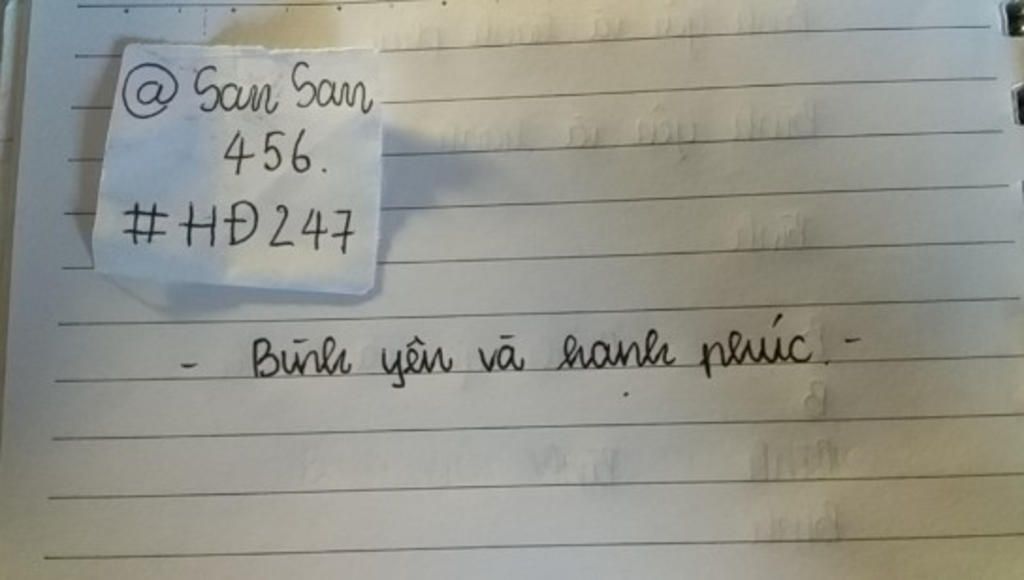 @ San San
456.
#HĐ247
- Bình yên và hạnh phúc. -